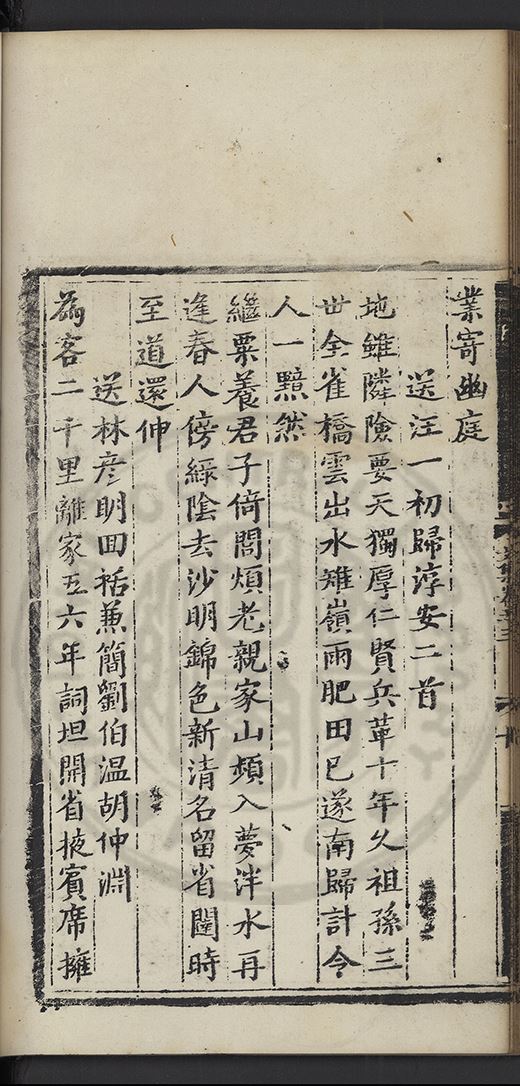 業寄幽庭
送汪一初歸淳安二首
地雖隣險要天獨厚仁賢兵革十年久祖孫三
世全雀橋雲出水雉嶺雨肥田已遂南歸計令
人一黯然
繼粟養君子倚閭煩老親家山頻入夢泮水再
逢春人傍綠陰去沙明錦色新清名留省闥時
至道還伸
送林彥明回栝蒹簡劉伯温胡仲淵
為客二千里離家五六年詞坦開省掖賓席擁